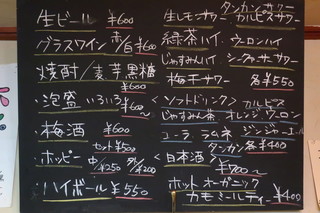 ・生ビール ¥600
・グラスワイン 赤/白 ¥600
・焼酎/麦芋黒糖 ¥600
・泡盛 いろいろ ¥600〜
・梅酒 ¥600
・ホッピー セット¥500 中/¥250 外/¥200
・ハイボール ¥550
生レモンサワー タンカンサワー カルピスサワー
緑茶ハイ ウーロンハイ
じゃすみんハイ シークヮーサーサワー
梅干サワー 各¥550
〈ソフトドリンク〉 カルピス
じゃすみん茶 オレンジ ウーロン
コーラ ラムネ ジンジャーエール
タンカン 各¥400
〈日本酒〉 ¥700〜
ホットオーガニック
カモミールティー ¥400